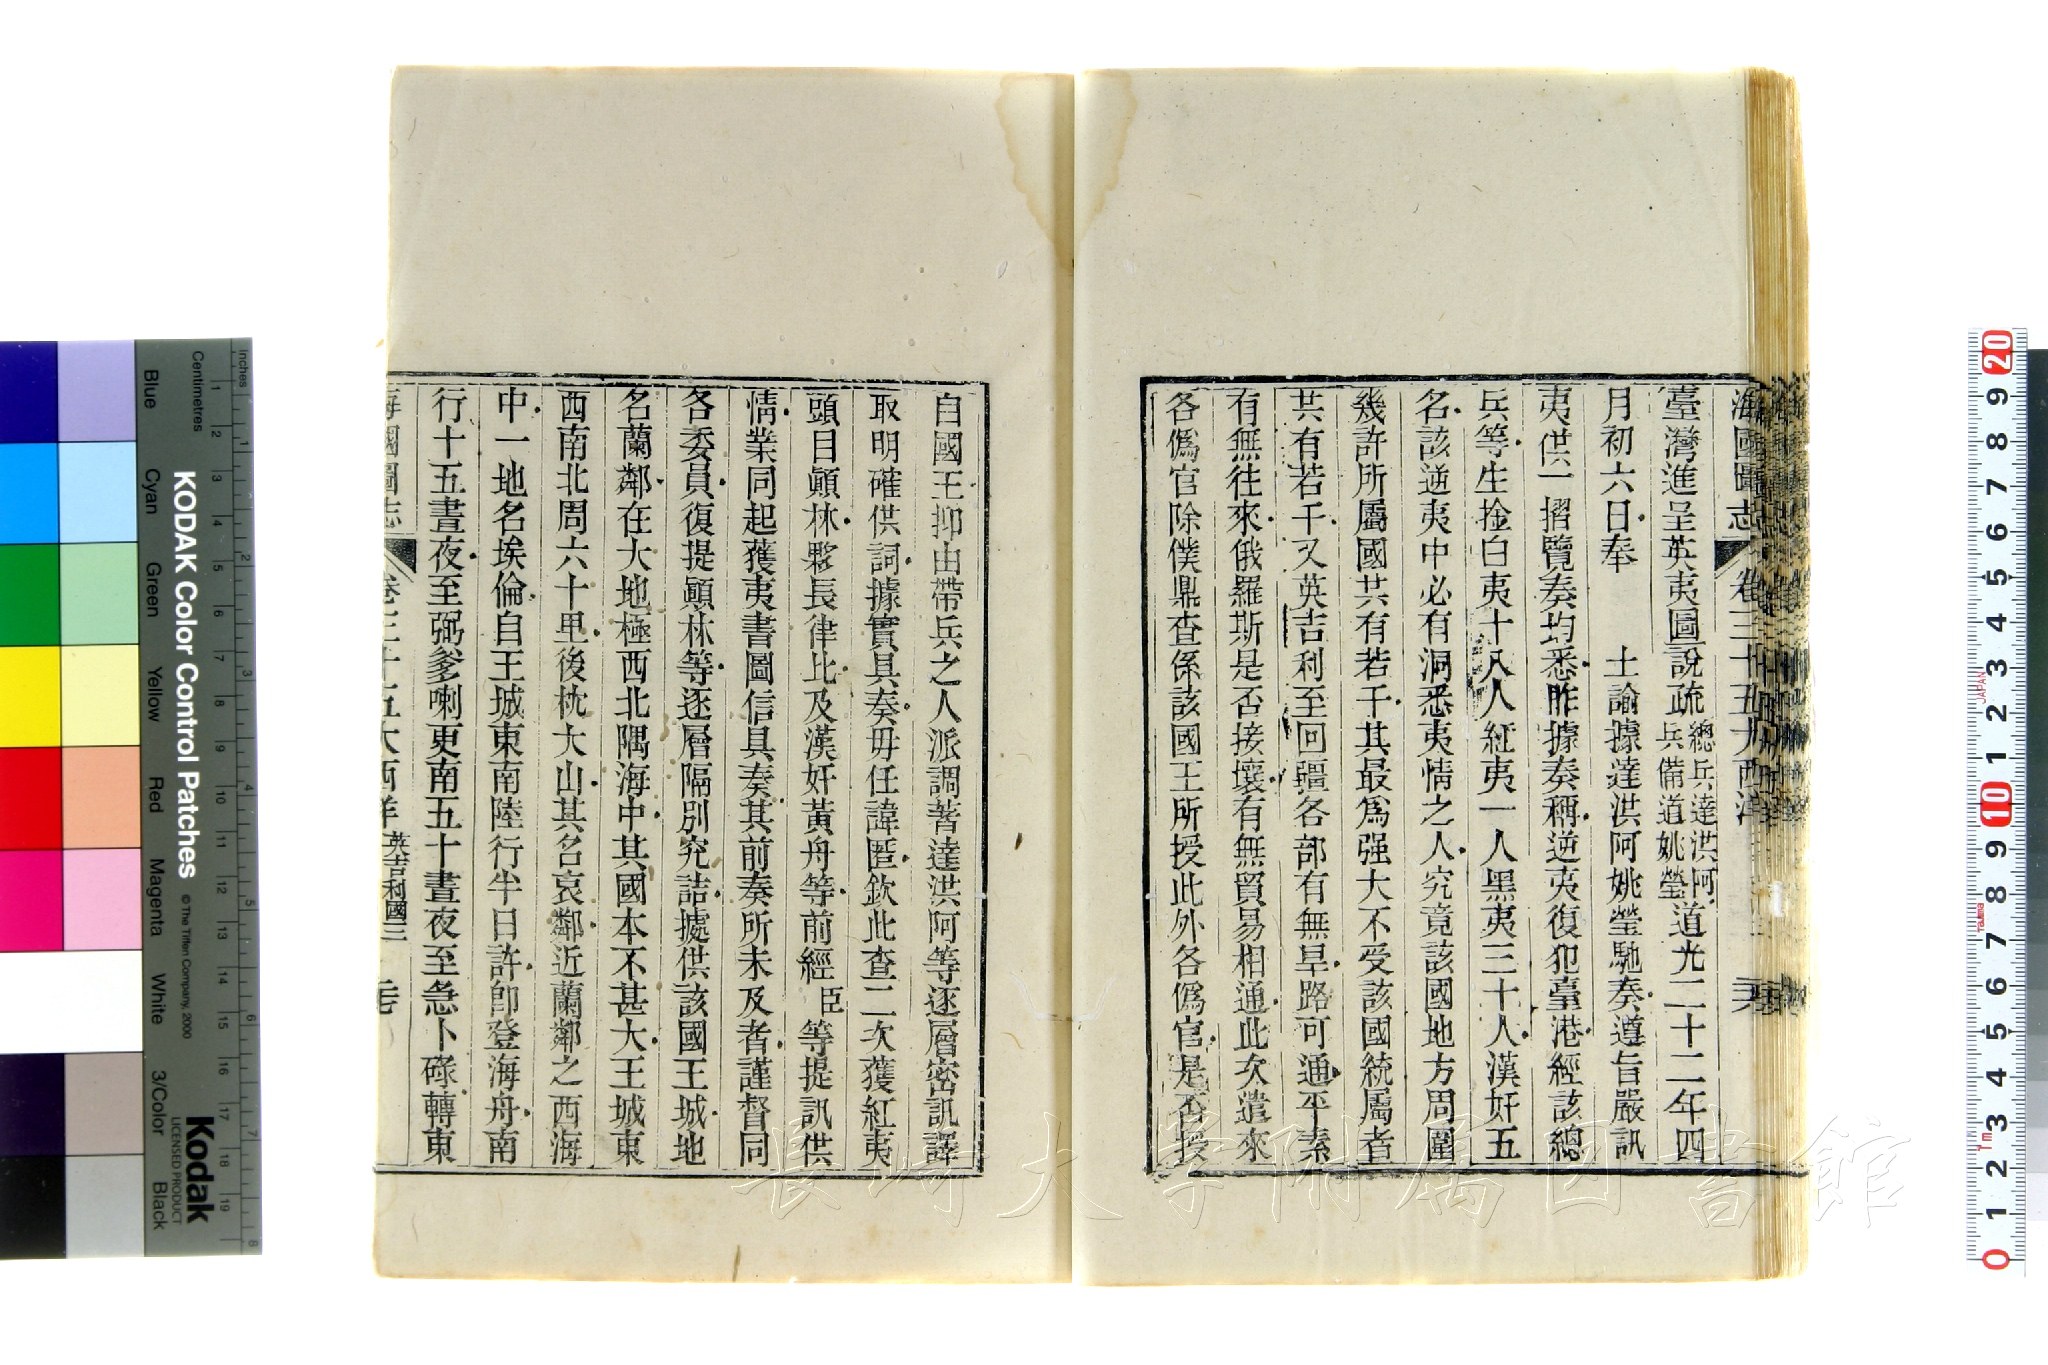 海國圖志 卷三十五大西洋
臺灣進呈英夷圖說疏 總兵達洪阿 兵備道姚瑩 道光二十二年四
月初六日奉 上諭據達洪阿姚瑩馳奏遵旨嚴訊
夷供一摺覽奏均悉昨據奏稱逆夷復犯臺港經該總
兵等生擒白夷十八人紅夷一人黑夷三十人漢奸五
名該逆夷中必有洞悉夷情之人究竟該國地方周圍
幾許所屬國共有若干其最爲强大不受該國統屬者
共有若干又英吉利至回疆各部有無旱路可通平素
有無往來俄羅斯是否接壤有無貿易相通此次遣來
各僞官除僕鼎查係該國王所授此外各僞官是否授
自國王抑由帶兵之人派調著達洪阿等逐層密訊譯
取明確供詞據實具奏毋任諱匿欽此查二次獲紅夷
頭目顚林夥長律比及漢奸黃舟等前經臣等提訊供
情業同起獲夷書圖信具奏其前奏所未及者謹督同
各委員復提顚林等逐層隔別究詰據供該國王城地
名蘭鄰在大地極西北隅海中其國本不甚大王城東
西南北周六十里後枕大山其名哀鄰近蘭鄰之西海
中一地名埃倫自王城東南陸行半日許卽登海舟南
行十五晝夜至弼爹喇更南五十晝夜至急卜碌轉東
海國圖志 卷三十五大西洋 英吉利國三
KODAK Color Control Patches
© The Tiffen Company, 2000
Kodak
LICENSED PRODUCT
Inches
Centimetres
Blue Cyan Green Yellow Red Magenta White 3/Color Black
1 2 3 4 5 6 7 8 9 10 11 12 13 14 15 16 17 18 19
1 2 3 4 5 6 7 8
20 9 8 7 6 5 4 3 2 1 10 9 8 7 6 5 4 3 2 1 0
JAPAN
1m
長崎大学附属図書館